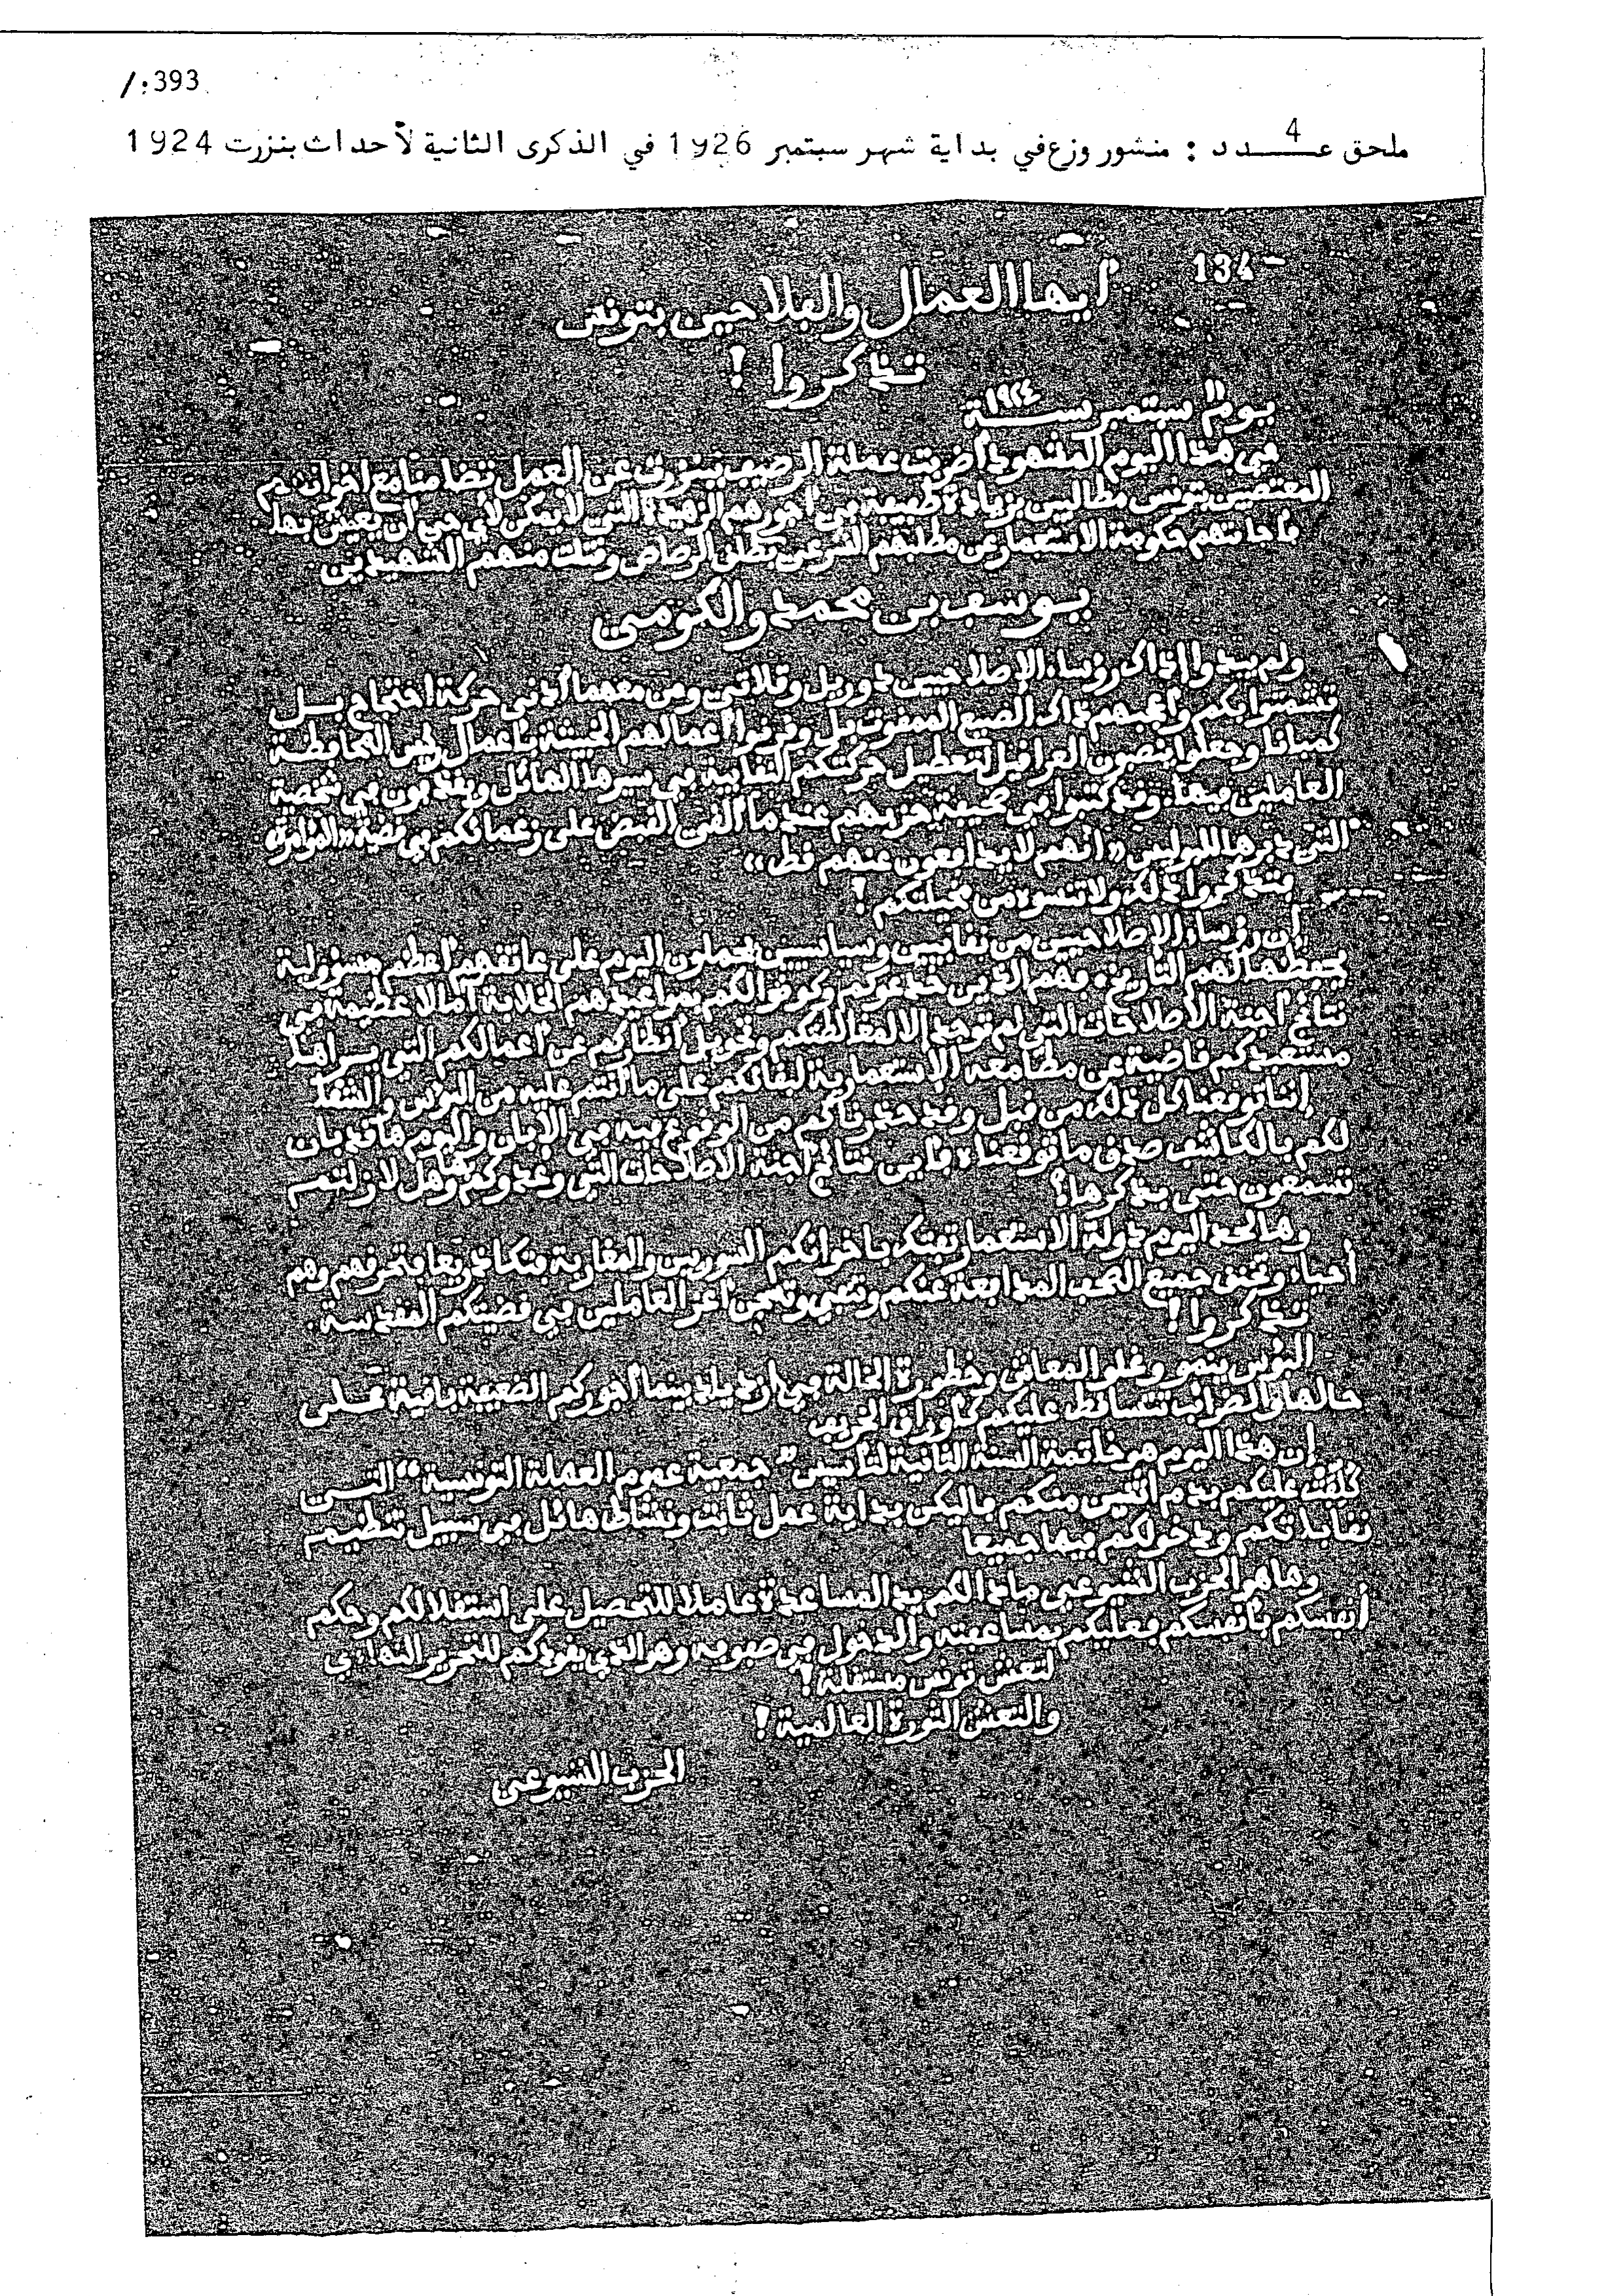 /:393
ملحق عــدد 4 : منشور وزع في بداية شهر سبتمبر 1926 في الذكرى الثانية لأحداث بنزرت 1924
134 -
أيها العمال والفلاحين بتونس
تذكروا !
يوم 11 سبتمبر سنة ١٩٢٤
في هذا اليوم المشهود أضربت عملة الرصيف ببنزرت عن العمل تضامنا مع اخوانهم
المعتصبين بتونس مطالبين بزيادة طفيفة في أجورهم الزهيدة التي لا يمكن لأي حي أن يعيش بها
فأجابتهم حكومة الاستعمار عن مطلبهم الشرعي بطلق الرصاص وقتلت منهم الشهيدين
يوسف بن محمد والكومي
ولم يبدوا إذ ذاك رؤساء الإصلاحيين دوريل وقلاتي ومن معهما أدنى حركة احتجاج بل
تشمتوا بكم وأعجبهم ذاك الصنيع الممقوت بل وقرنوا أعمالهم الخبيثة بأعمال رئيس المحافظة
كمبانا وجعلوا ينصبون العراقيل لتعطيل حركتكم النقابية في سيرها الهائل ويقذفون في شخصية
العاملين فيها. وقد كتبوا في صحيفة حزبهم عندما ألقي القبض على زعمائكم في قضية «المؤامرة»
التي دبرها البوليس «انهم لا يدافعون عنهم قط»
فتذكروا ذلك ولا تنسوه من مخيلتكم !
إن رؤساء الإصلاحيين من نقابيين وسياسيين يحملون اليوم على عاتقهم أعظم مسؤولية
يحفظها لهم التاريخ. فهم الذين خدعوكم وكونوا لكم بمواعيدهم الخلابة آمالا عظيمة في
نتائج لجنة الاصلاحات التي لم توجد الا لمغالطتكم وتحويل أنظاركم عن أعمالكم التي يراها
مستعبدكم قاضية عن مطامعه الإستعمارية لبقائكم على ما أنتم عليه من البؤس والشقاء
إننا توقعنا كل ذلك من قبل وقد حذرناكم من الوقوع فيه في الإبان واليوم ها قد بان
لكم بالكاشف صدق ما توقعناه فأين نتائج لجنة الاصلاحات التي وعدوكم بها وهل لا زلتم
تسمعون حتى بذكرها؟
وها نحن اليوم دولة الاستعمار تفتك باخوانكم السوريين والمغاربة فتكا ذريعا فتحرقهم وهم
أحياء وتخنق جميع الصحف المدافعة عنكم وتنفي وتسجن أعز العاملين في قضيتكم المقدسة.
تذكروا !
البؤس ينمو وغلو المعاش وخطورة الحالة في ازدياد بينما أجوركم الضعيفة باقية على
حالها والضرائب تتساقط عليكم كأوراق الخريف
إن هذا اليوم هو خاتمة السنة الثانية لتأسيس "جمعية عموم العملة التونسية" التي
كلفت عليكم بدم اثنين منكم فاليكن بداية عمل ثابت ونشاط هائل في سبيل تنظيم
نقاباتكم ودخولكم فيها جميعا
وها هو الحزب الشيوعي مادا لكم يد المساعدة عاملا للتحصيل على استقلالكم وحكم
أنفسكم بأنفسكم فعليكم بمساعفته والدخول في صفوفه وهو الذي يقودكم للتحرير النهائي
لتعش تونس مستقلة !
والتعش الثورة العالمية !
الحزب الشيوعي